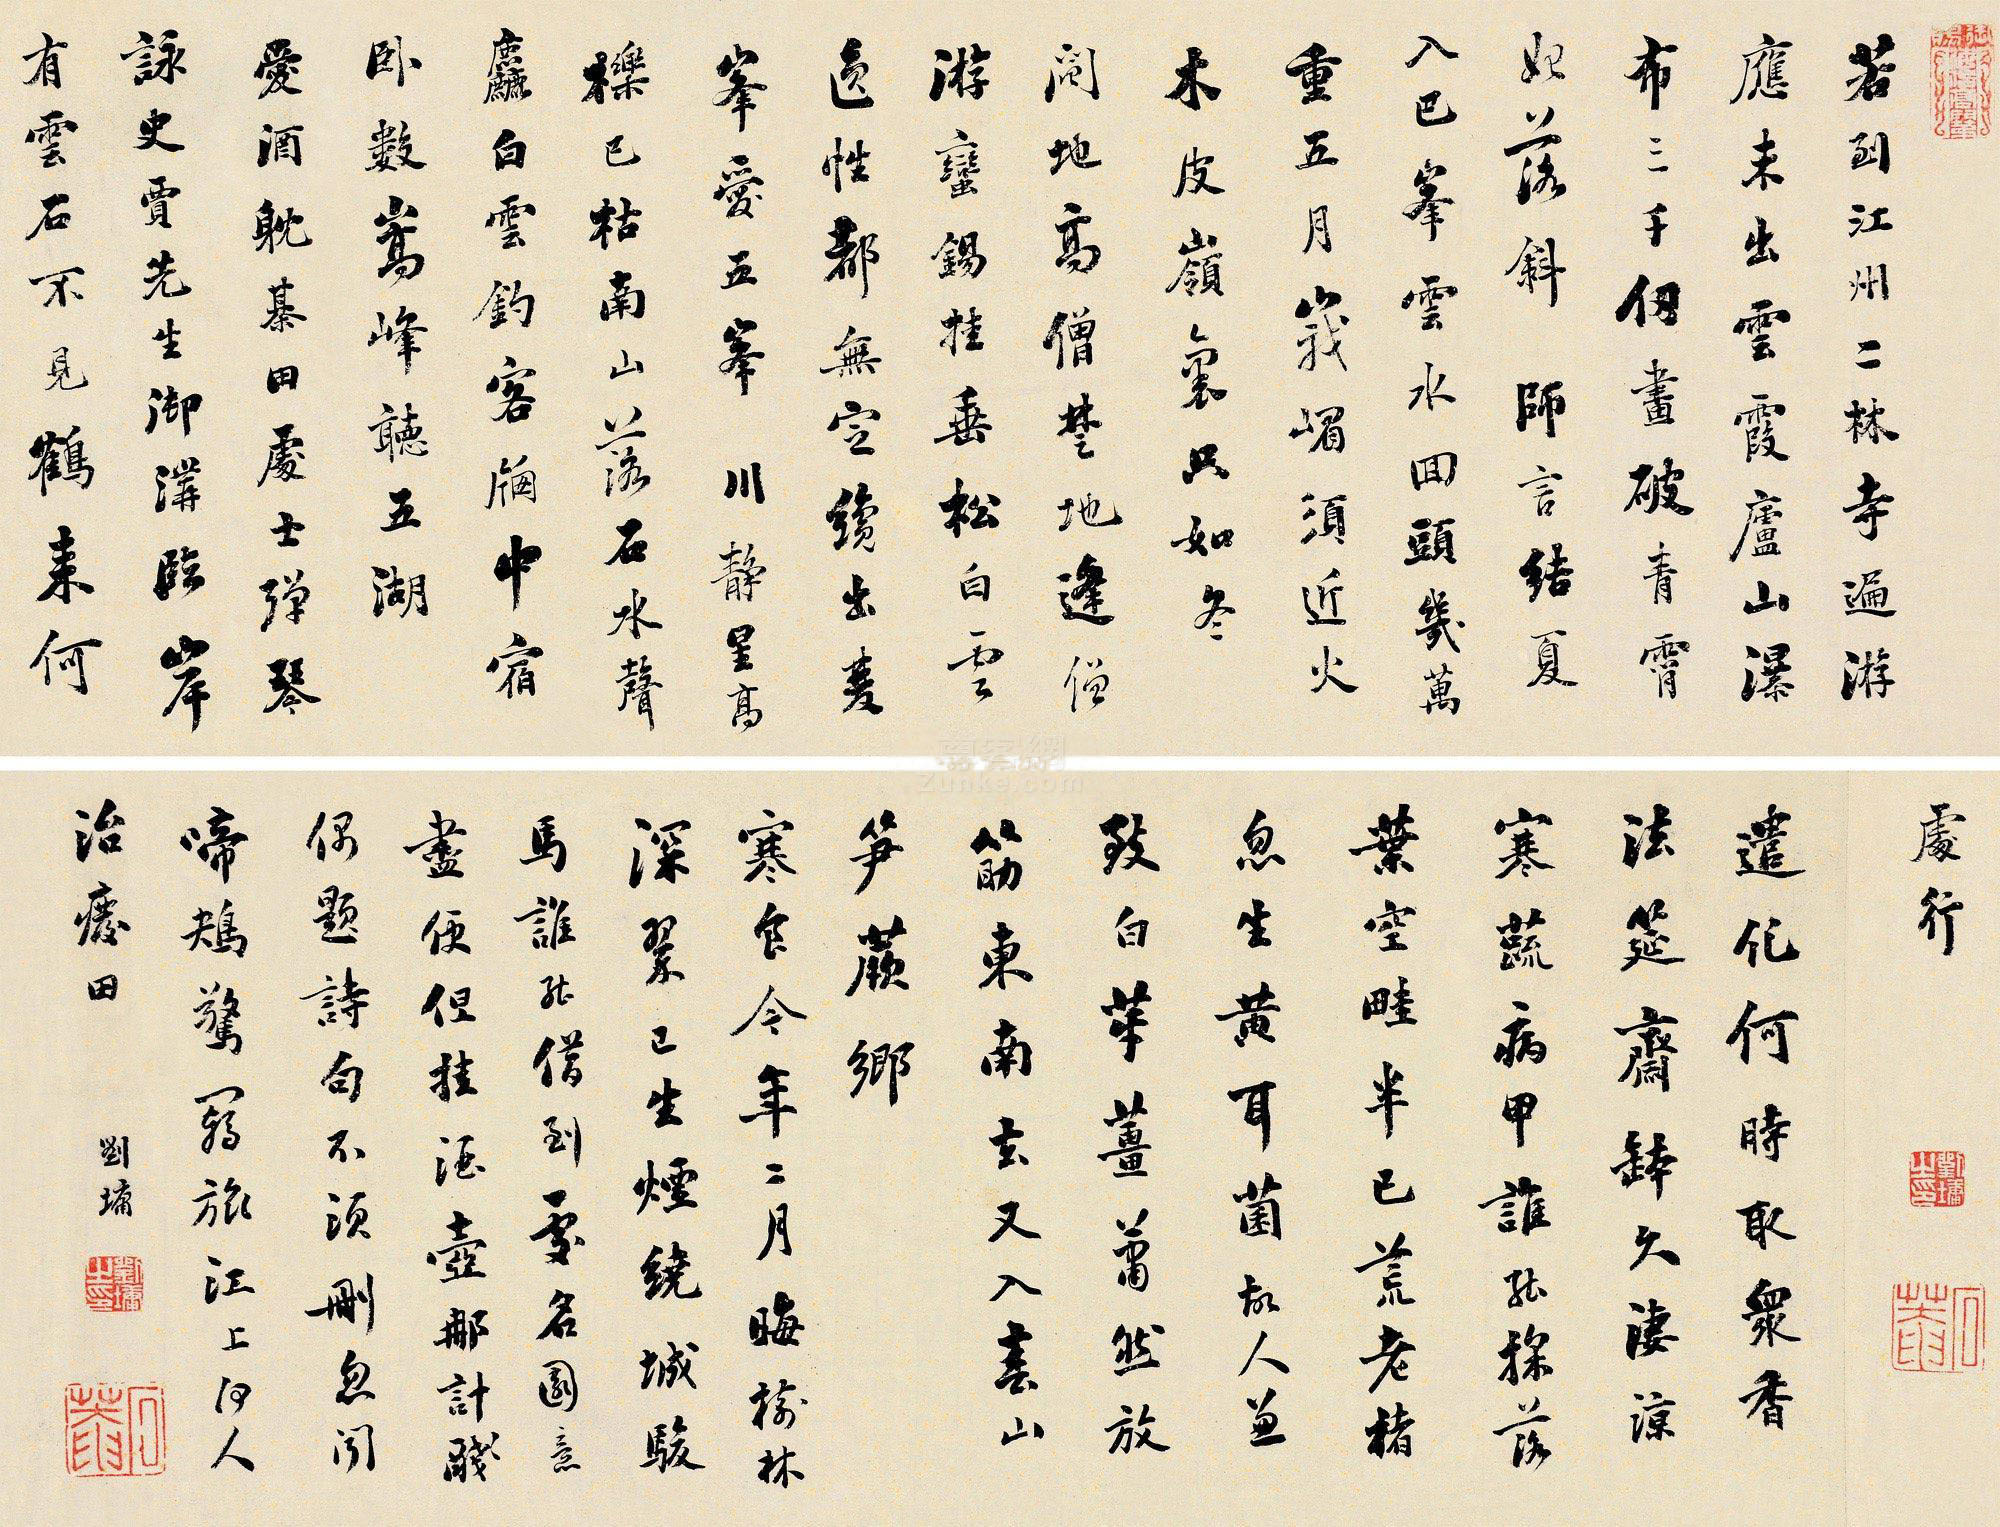 若到江州二林寺遍游
應未出雲霞廬山瀑
布三千仞畫破青霄
始落斜 師言結夏
入巴峯雲水回頭幾萬
重五月峩嵋須近火
木皮嶺裏只如冬
閬地高僧楚地逢僧
游蠻錫挂垂松白雲
逸性都無定纔出菱
峯愛五峯 川靜星高
櫟已枯南山落石水聲
麤白雲釣客牕中宿
卧數嵩峰聽五湖
愛酒耽棊田處士彈琴
詠史賈先生御溝臨岸
有雲石不見鶴來何
處行
遣化何時取衆香
法筵齋鉢久淒涼
寒蔬病甲誰能採落
葉空畦半已荒老楮
忽生黃耳菌故人兼
致白芽薑蕭然放
箸東南去又入春山
笋蕨鄉
寒食今年二月晦榆林
深翠已生煙繞城駿
馬誰能借到處名園意
盡便但挂酒壺那計醆
偶題詩句不須刪忽聞
啼鴂驚羇旅江上何人
治癈田
劉墉
劉墉之印
石菴
劉墉之印
石菴
尊客網
Zunke.com